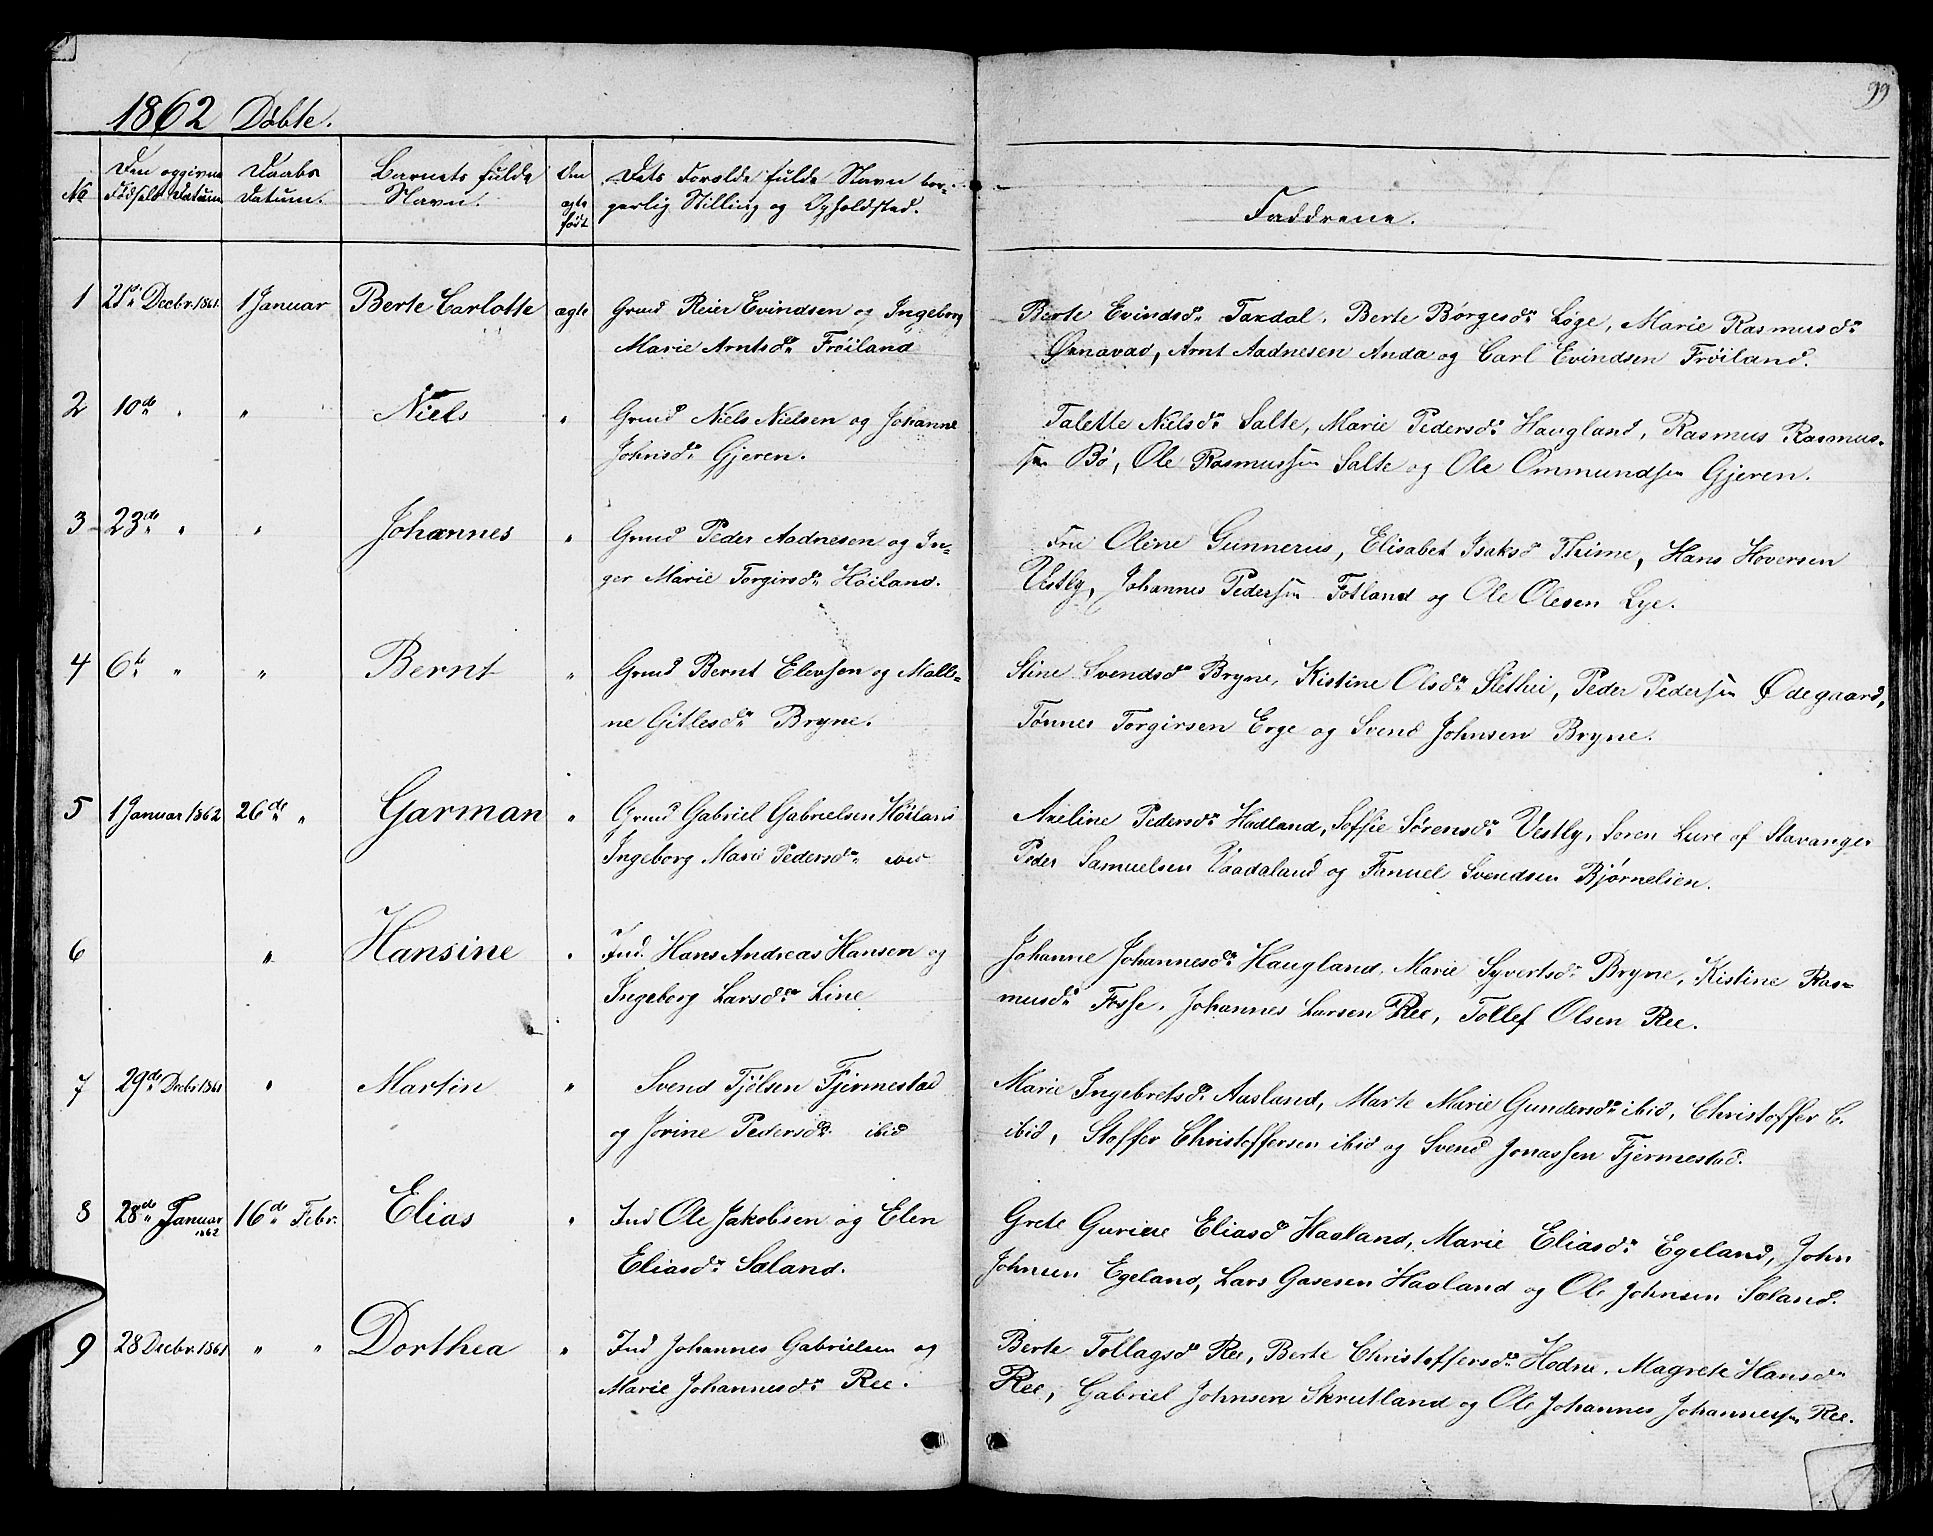 99
1862 Døbte.
No
Den opgivne Fødsels Datum
Daabs Datum.
Barnets fulde Navn.
Om ægte født
Dets Forældre fulde Navn bor-
gerlig Stilling og Opholdsted.
Faddrene.
1 21de Decbr. 1861 1 Januar Berte Carlotte ægte Grmd Reier Evindsen og Ingeborg
Marie Arntsdr Frøiland
Berte Evindsdr Taxdal, Berte Børgesdr Løge, Marie Rasmusdr
Ørnavad, Arnt Aadnesen Anda og Carl Evindsen Frøiland.
2 10de " " Niels " Grmd Niels Nielsen og Johanne
Johnsdr Gjeren.
Talette Nielsdr Salte, Marie Pedersdr Haugland, Rasmus Rasmus-
sen Bø, Ole Rasmussen Salte og Ole Ommundsen Gjeren.
3 23de " " Johannes " Grmd Peder Aadnesen og In-
ger Marie Torgirsdr Høiland.
Frue Oline Gunnerus, Elisabet Isaksd Thime, Hans Hoversen
Vestly, Johannes Pedersen Fotland og Ole Olesen Lye.
4 6te " " Bernt " Grmd Bernt Elevsen og Malle-
ne Gitlesdr Bryne.
Stine Svendsdr Bryne, Kistine Olsdr Slethei, Peder Pedersen Ødegaard,
Tønnes Torgirsen Erge og Svend Johnsen Bryne.
5 1 Januar 1862 26de " Garman " Grmd Gabriel Gabrielsen Høiland
Ingeborg Marie Pedersdr ibid
Axeline Pedersdr Hadland, Soffie Sørensdr Vestly, Søren Lure af Stavanger
Peder Samuelsen Vaadaland og Fanuel Svendsen Bjørnelien.
6 " Hansine " Ind. Hans Andreas Hansen og
Ingeborg Larsdr Line
Johanne Johannesdr Haugland, Marie Syvertsdr Bryne, Kistine Ras-
musdr Fosse, Johannes Larsen Ree, Tollef Olsen Ree.
7 29de Decbr 1861 " Martin " Svend Tjølsen Fjermestad
og Jorine Pedersdr ibid
Marie Ingebretsdr Aasland, Marte Marie Gundersdr ibid, Christoffer C.
ibid, Stoffer Christoffersen ibid og Svend Jonassen Fjermestad.
8 28de Januar 1862 16de Febr: Elias " Ind Ole Jakobsen og Elen
Eliasdr Sæland.
Grete Guriee Eliasd Haaland, Marie Eliasdr Egeland, John
Johnsen Egeland, Lars Gasesen Haaland og Ole Johnsen Sæland.
9 28 Decbr. 1861 " " Dorthea " Ind Johannes Gabrielsen og
Marie Johannesdr Ree.
Berte Tollagsdr Ree, Berte Christoffersdr Hodne, Magrete Hansdr
Ree, Gabriel Johnsen Skrutland og Ole Johannes Johannessen Ree.